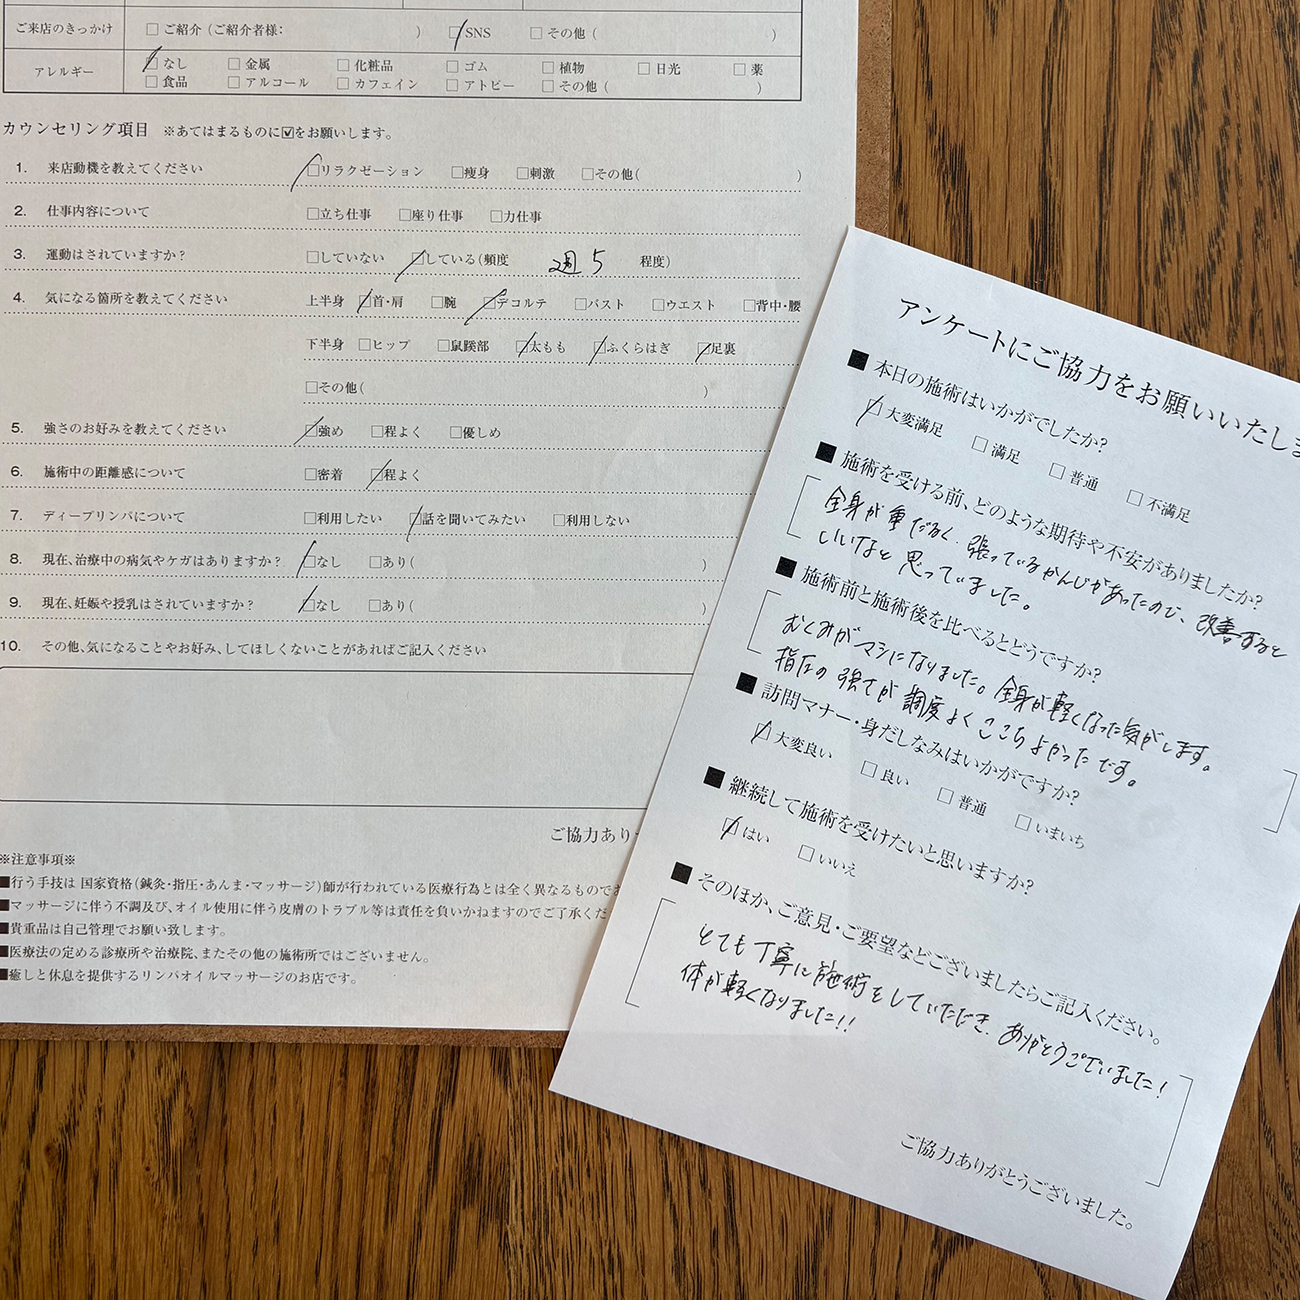 ご来店のきっかけ □ご紹介(ご紹介者様: ) □SNS □その他( )
アレルギー □なし □金属 □化粧品 □ゴム □植物 □日光 □薬
□食品 □アルコール □カフェイン □アトピー □その他( )
カウンセリング項目 ※あてはまるものに☑をお願いします。
1. 来店動機を教えてください □リラクゼーション □痩身 □刺激 □その他( )
2. 仕事内容について □立ち仕事 □座り仕事 □力仕事
3. 運動はされていますか? □していない □している(頻度 週5 程度)
4. 気になる箇所を教えてください 上半身 □首・肩 □腕 □デコルテ □バスト □ウエスト □背中・腰
下半身 □ヒップ □鼠蹊部 □太もも □ふくらはぎ □足裏
□その他( )
5. 強さのお好みを教えてください □強め □程よく □優しめ
6. 施術中の距離感について □密着 □程よく
7. ディープリンパについて □利用したい □話を聞いてみたい □利用しない
8. 現在、治療中の病気やケガはありますか? □なし □あり( )
9. 現在、妊娠や授乳はされていますか? □なし □あり( )
10. その他、気になることやお好み、してほしくないことがあればご記入ください
ご協力あり
※注意事項※
■行う手技は 国家資格(鍼灸・指圧・あんま・マッサージ)師が行われている医療行為とは全く異なるもので
■マッサージに伴う不調及び、オイル使用に伴う皮膚のトラブル等は責任を負いかねますのでご了承くだ
■貴重品は自己管理でお願い致します。
■医療法の定める診療所や治療院、またその他の施術所ではございません。
■癒しと休息を提供するリンパオイルマッサージのお店です。
アンケートにご協力をお願いいたしま
■ 本日の施術はいかがでしたか?
□大変満足 □満足 □普通 □不満足
■ 施術を受ける前、どのような期待や不安がありましたか?
全身が重だるく、張っているかんじがあったので、改善すると
いいなと思っていました。
■ 施術前と施術後を比べるとどうですか?
むくみがマシになりました。全身が軽くなった気がします。
指圧の強さが調度よくここちよかったです。
■ 訪問マナー・身だしなみはいかがですか?
□大変良い □良い □普通 □いまいち
■ 継続して施術を受けたいと思いますか?
□はい □いいえ
■ そのほか、ご意見・ご要望などございましたらご記入ください。
とても丁寧に施術をしていただき、ありがとうございました!
体が軽くなりました!!
ご協力ありがとうございました。